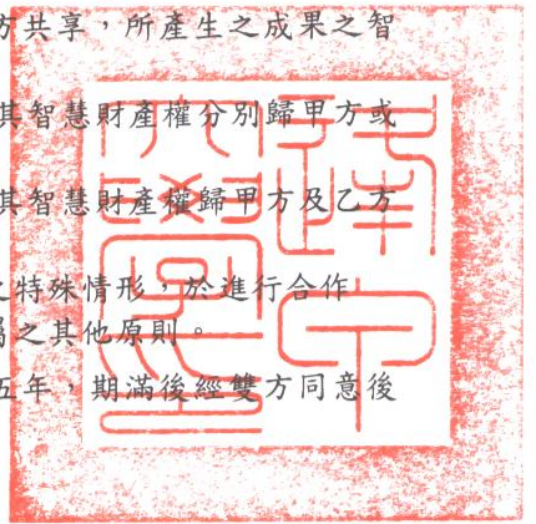 方共享，所產生之成果之智
其智慧財產權分別歸甲方或
其智慧財產權歸甲方及乙方
之特殊情形，於進行合作
屬之其他原則。
五年，期滿後經雙方同意後
逢甲大學印